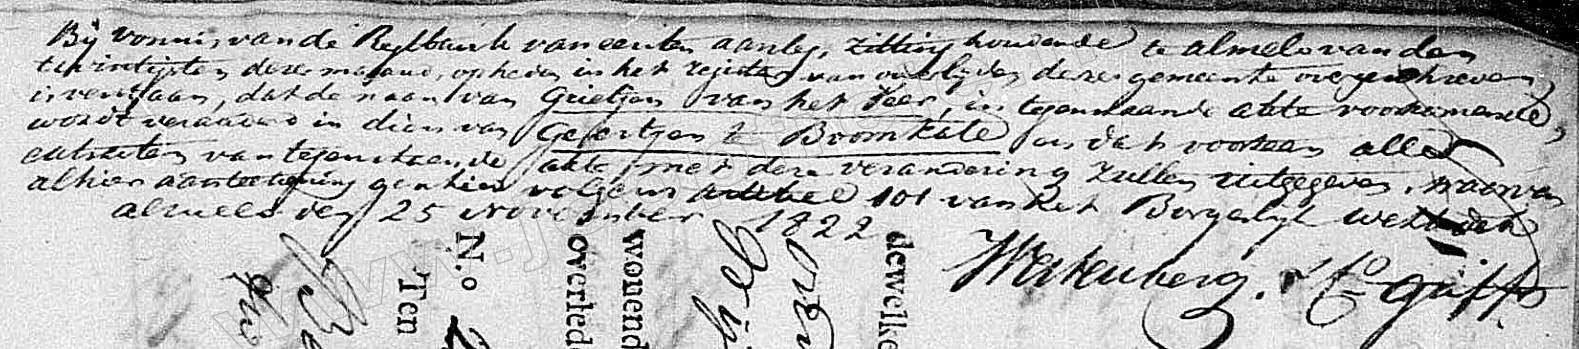 Bij vonnis van de Regtbank van eersten aanleg, zitting houdende te Almelo van den
twintigsten dezer maand, op heden in het register van overlijden dezer gemeente overgeschreven,
is verstaan, dat de naam van Grietjen van het Veer, in tegenstaande akte voorkomende,
wordt veranderd in dien van Geertjen te Boomkate en dat voortaan alle
extracten van tegenstaende akte met deze verandering zullen uitgegeven, waarvan
alhier aanteekening geschied volgens artikel 101 van het Borgerlijk Wetboek
Almelo den 25 November 1822
Warkenberg.
dewelke
wonend
overlede
N.o 2
Ten